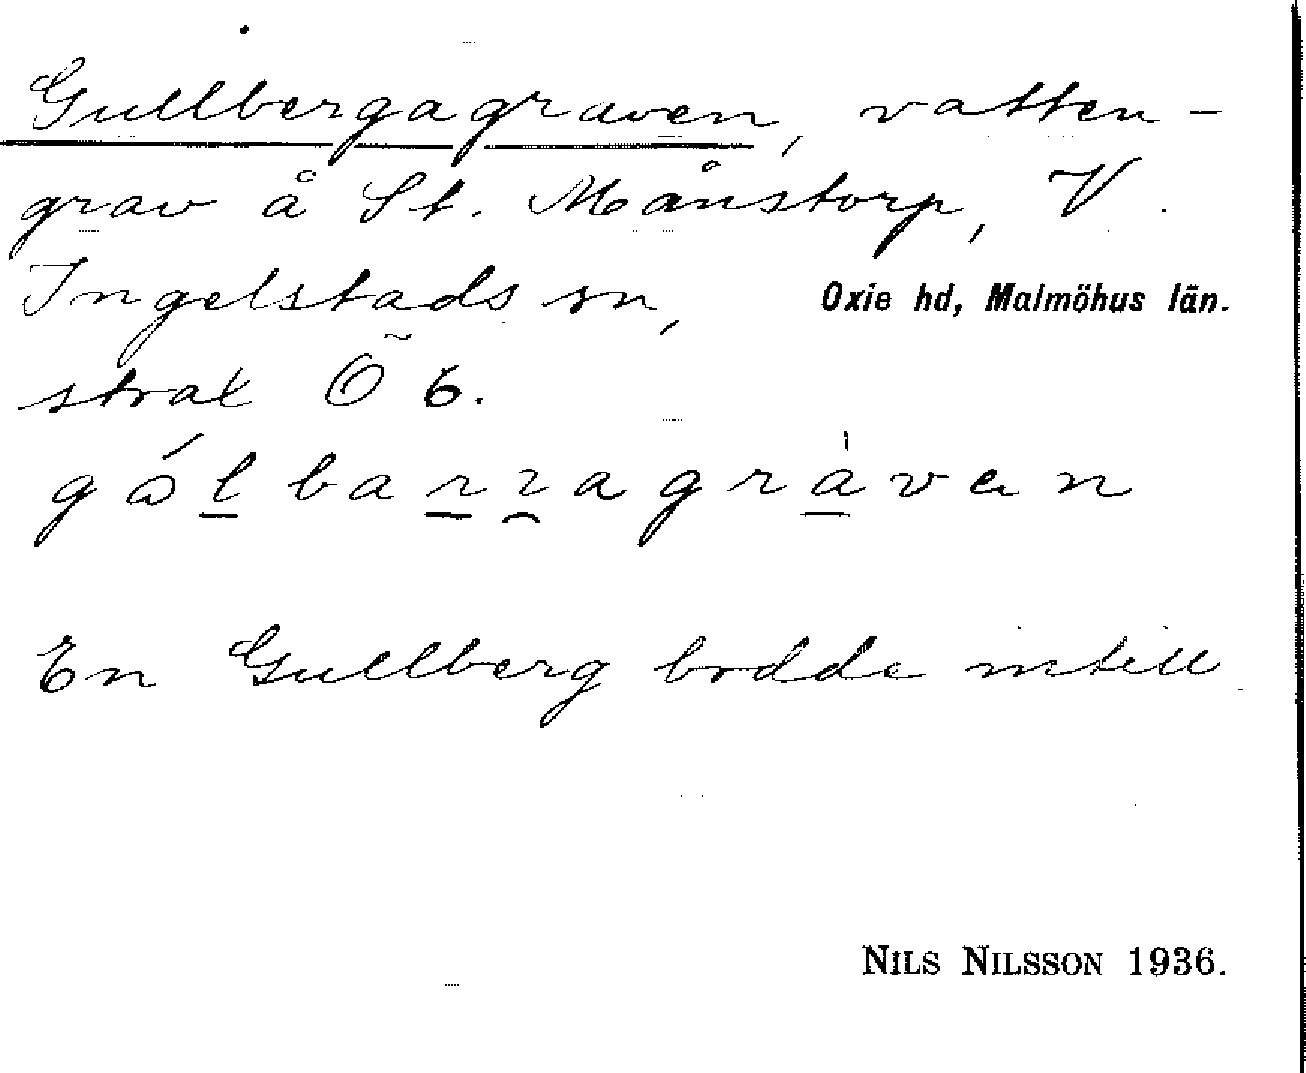 Gullbergagraven, vatten-
grav å St. Månstorp, V.
Ingelstads sn, Oxie hd, Malmöhus län.
strax Ö 6.
En Gullberg bodde intill.
NILS NILSSON 1936.